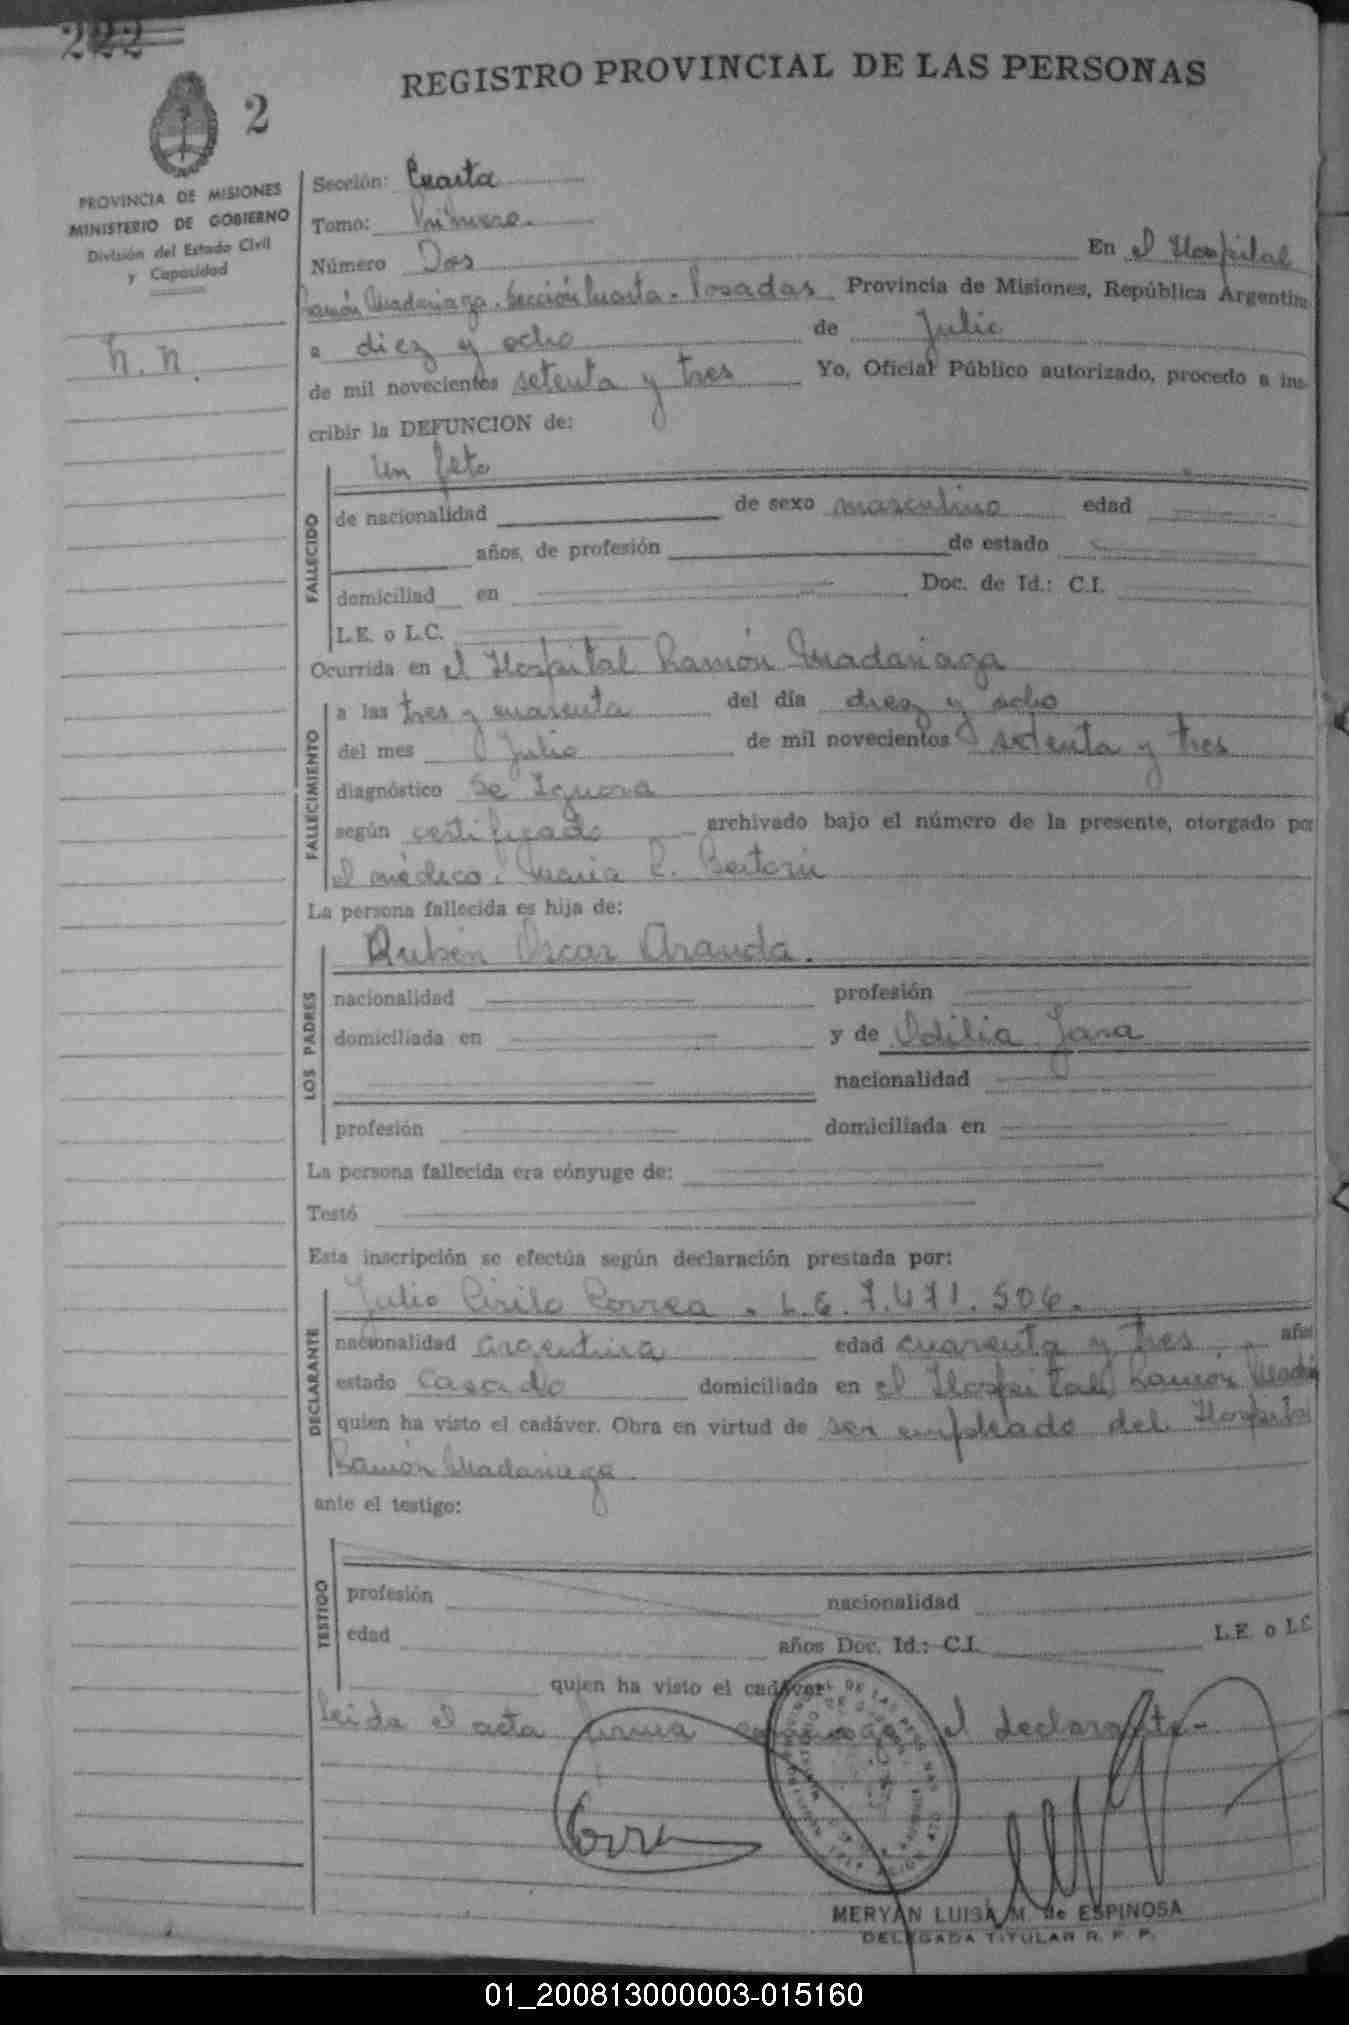 222
2
REGISTRO PROVINCIAL DE LAS PERSONAS
PROVINCIA DE MISIONES
MINISTERIO DE GOBIERNO
División del Estado Civil
y Capacidad
n. n.
Sección: Cuarta
Tomo: Primero.
Número Dos En el Hospital
Ramón Madariaga. Sección Cuarta. Posadas Provincia de Misiones, República Argentina
a diez y ocho de Julio
de mil novecientos setenta y tres Yo, Oficial Público autorizado, procedo a ins-
cribir la DEFUNCION de:
Un feto
FALLECIDO
de nacionalidad de sexo masculino edad
años, de profesión de estado
domiciliad en Doc. de Id.: C.I.
L.E. o L.C.
Ocurrida en el Hospital Ramón Madariaga
FALLECIMIENTO
a las tres y cuarenta del día diez y ocho
del mes Julio de mil novecientos setenta y tres
diagnóstico Se Ignora
según certificado archivado bajo el número de la presente, otorgado por
el médico. María
La persona fallecida es hija de:
Rubén Oscar Aranda.
LOS PADRES
nacionalidad profesión
domiciliada en y de Odilia Jara
nacionalidad
profesión domiciliada en
La persona fallecida era cónyuge de:
Testó
Esta inscripción se efectúa según declaración prestada por:
Julio Cirilo Correa. L.E. 7.471.506.
DECLARANTE
nacionalidad argentina edad cuarenta y tres años
estado Casado domiciliada en el Hospital Ramón
quien ha visto el cadáver. Obra en virtud de ser empleado del Hospital
Ramón Madariaga
ante el testigo:
TESTIGO
profesión nacionalidad
edad años Doc. Id.: C.I. L.E. o LC
quien ha visto el cadáver
Leída el acta firma conmigo el declarante-
MERYAN LUISA M. de ESPINOSA
DELEGADA TITULAR R. P. P.
01_200813000003-015160